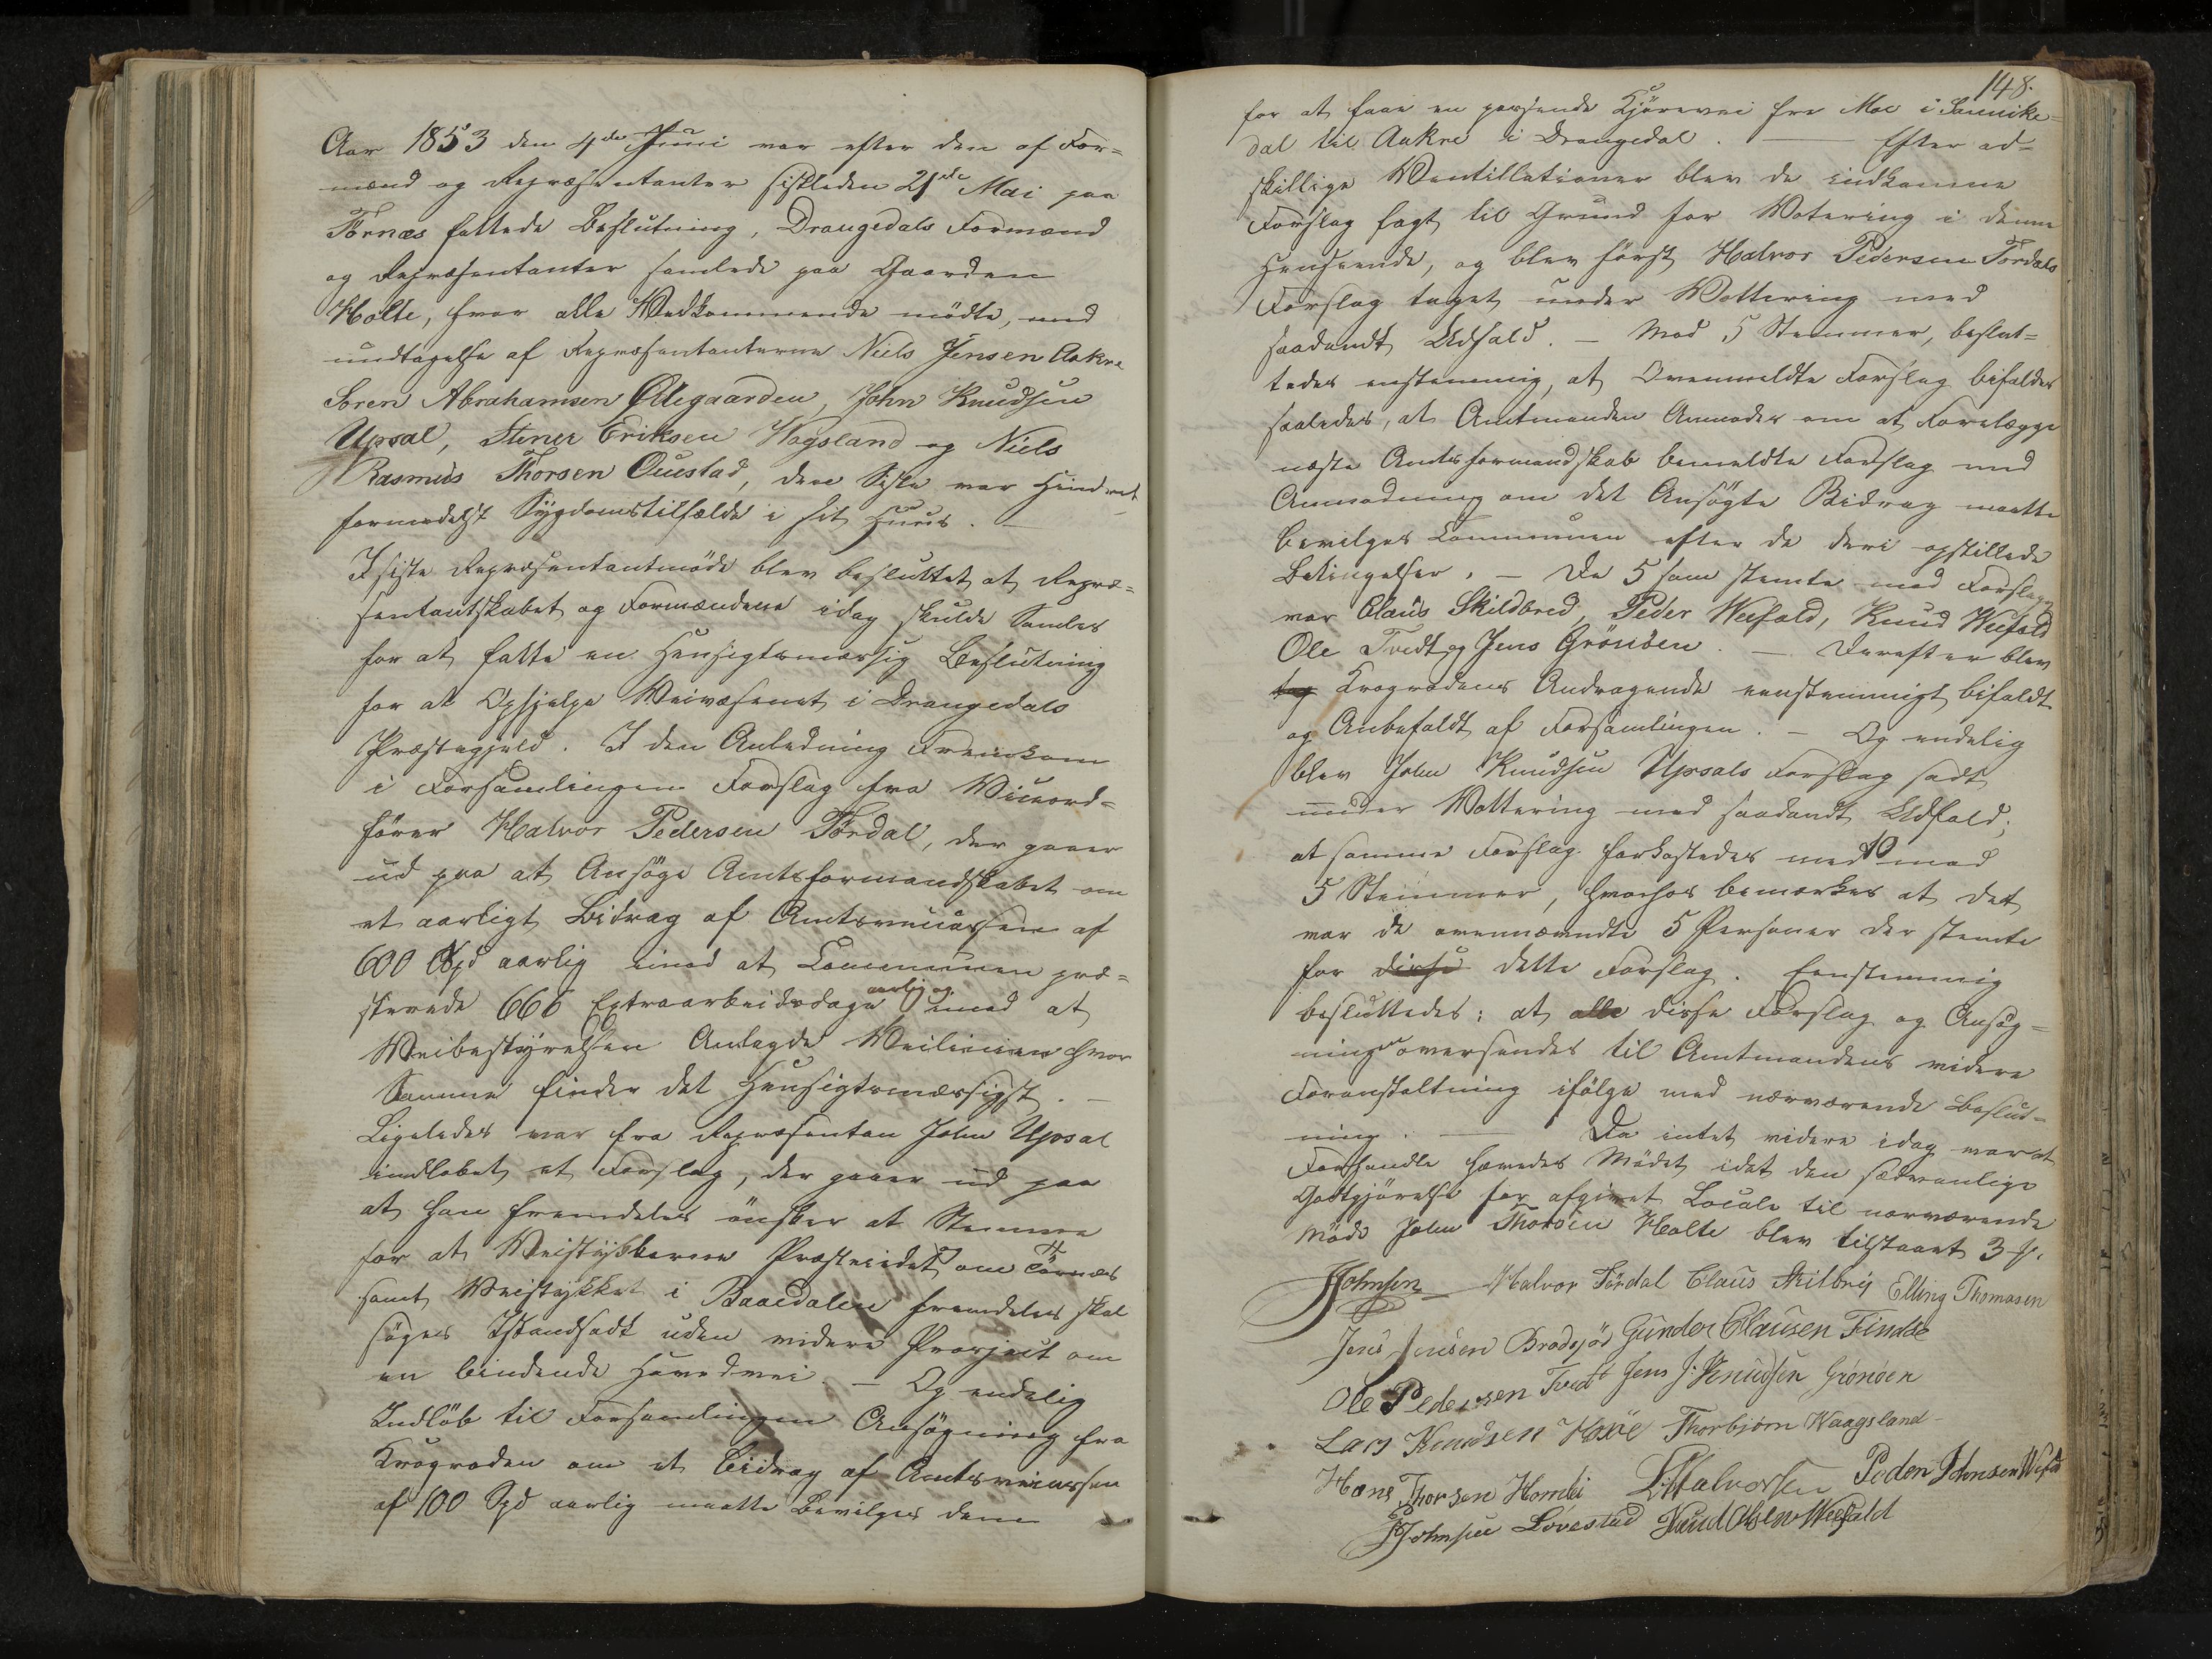 Aar 1853 den 4de Juni var efter den af For=
mænd og Repræsentanter sistleden 21de Mai paa
Törnæs fattede Beslutning, Drangedals Formænd
og Repræsentanter samlede paa Gaarden
Holte, hvor alle Vedkommende mödte, med
undtagelse af Repræsentanterne Niels Jensen Aakre
Sören Abrahamsen Ødegaarden, John Knudsen
Upsal, Stener Eriksen Wagsland og Niels
Rasmus Thorsen Ouestad, den Siste var Hindret
formedelst Sygdomstilfælde i sit Huus. —
I siste Repræsentantmöde blev besluttet at Repræ=
sentantskabet og Formændene idag skulde Samles
for at fatte en Hensigtsmæssig Beslutning
for at Ophjelpe Veivæsenet i Drangedals
Præstegjeld. I den Anledning Fremkom
i Forsamlingen Forslag fra Viceord=
förer Halvor Pedersen Tördal, der gaaer
ud paa at Ansöge Amtsformandskabet om
et aarligt Bidrag af Amtsveicassen af
600 Spd aarlig imod at Communen præ=
sterede 666 Extraarbeidsdage aarlig og imod at
Veibestyrelsen Anlagde Veilinien hvor
Samme finder det Hensigtsmæssigst. —
Ligeledes var fra Repræsentan John Upsal
indlöbet et Forslag, der gaaer ud paa
at han fremdeles önsker at Stemme
for at Veistykkerne Præsteeidet om Törnæs
samt Veistykket i Baaedalen fremdeles skal
söges Istandsadt uden videre Project om
en bindende Hovedvei. — Og endelig
Indlöb til Forsamlingen Ansögning fra
Krogroden om et Bidrag af Amtsveicassen
af 100 Spd aarlig maatte Bevilges dem
148.
for at faae en passende Kjörevei fra Moe i Sannike=
dal til Aakre i Drangedal. — Efter ad=
skillige Ventillationer blev de indkomne
Forslag lagt til Grund for Votering i denne
Henseende, og blev först Halvor Pedersen Tördals
Forslag taget under Vottering med
saadandt Udfald. — Mod 5 Stemmer, beslut=
tedes enstemmig, at Ovenmeldte Forslag bifaldes
saaledes, at Amtmanden Anmodes om at Forelægge
næste Amtsformandskab bemeldte Forslag med
Anmodning om det Ansögte Bidrag maatte
bevilges Communen efter de deri opstillede
Betingelser. — De 5 som stemte mod Forslaget
var Claus Skildbred, Peder Weefald, Knud Weefald
Ole Tvedt og Jens Grönöen. — Derefter blev
tog Krogrodens Andragende eenstemmigt bifaldt
og Anbefaldt af Forsamlingen. — Og endelig
blev John Knudsen Upsals Forslag sadt
under Vottering med saadandt Udfald;
at samme Forslag forkastedes med 10 mod
5 Stemmer, hvorhos bemærkes at det
var de ovennævndte 5 Personer der stemte
for disse dette Forslag. Eenstemmig
besluttedes: at alle disse Forslag og Ansög=
ninger oversendes til Amtmandens videre
Foranstaltning ifölge med nærværende Beslut=
ning. — Da intet videre idag var at
Forhandle hævedes Mödet, idet den sædvanlige
Godtgjörelse for afgivet Locale til nærværende
Möde John Thorsen Holte blev tilstaaet 3 .
JJohnsen Halvor Tördal Claus Skilbrij Elling Thomasen
Jens Jensen Brødsjö Gunder Clausen Findal
Ole Pedersen Tvedt Jens J: Knudsen Grönöen
Lars Knudsen Thorbjörn Waagsland
Hans Thorsen LHalvorsen Peder Johnsen Wefald
JJohnsen Lovestad Knud Olsen Weefald